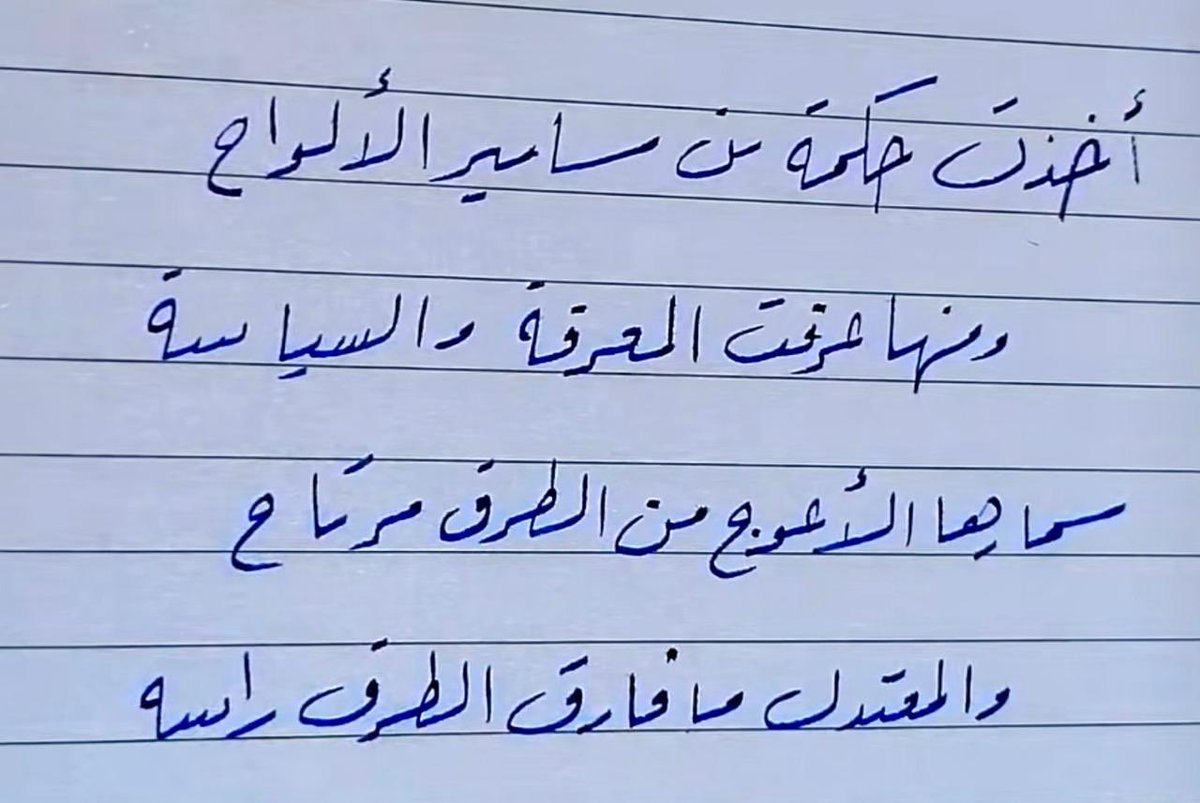 أخذت حكمة من مسامير الألواح
ومنها عرفت المعرفة والسياسة
مسمارها الأعوج من الطرق مرتاح
والمعتدل ما فارق الطرق راسه